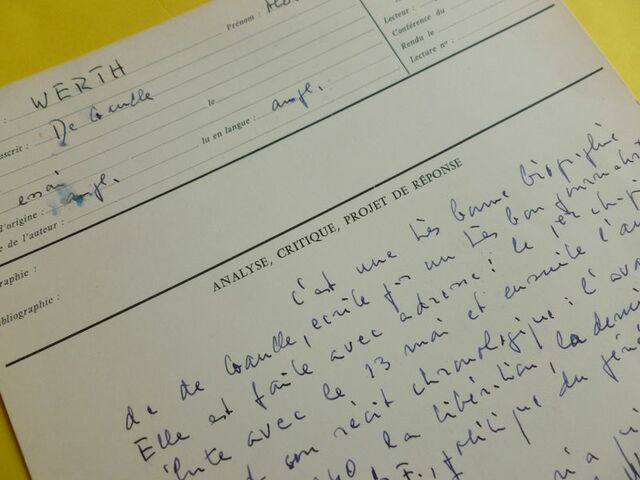 Prénom :
: WERTH
Lecteur :
Conférence du
Rendu le
Lecture n° :
uscrit : De Gaulle le
essai lu en langue : angl.
d'origine : angl.
e de l'auteur :
raphie :
ibliographie :
ANALYSE, CRITIQUE, PROJET DE RÉPONSE
C'est une très bonne biographie
de de Gaulle, écrite par un très bon journaliste
Elle est faite avec adresse : le 1er chapi
bute avec le 13 mai et ensuite l'au
son récit chronologique : l'ava
40 la libération, la derni
F., politique du géné